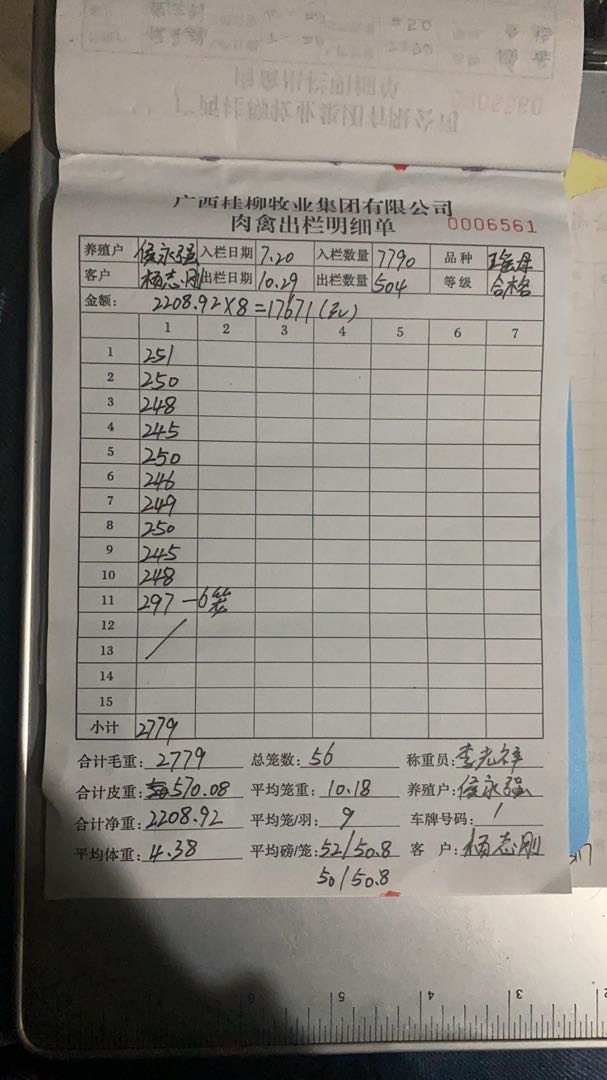 广西桂柳牧业集团有限公司
肉禽出栏明细单 0006561
养殖户 侯永强 入栏日期 7.20 入栏数量 7790 品种 瑶母
客户 杨志刚 出栏日期 10.29 出栏数量 504 等级 合格
金额: 2208.92×8=17671(元)
1 2 3 4 5 6 7
1 251
2 250
3 248
4 245
5 250
6 246
7 249
8 250
9 245
10 248
11 297-6笼
12
13
14
15
小计 2779
合计毛重: 2779 总笼数: 56 称重员: 李光祥
合计皮重: 570.08 平均笼重: 10.18 养殖户: 侯永强
合计净重: 2208.92 平均笼/羽: 9 车牌号码: /
平均体重: 4.38 平均磅/笼: 52/50.8 客 户: 杨志刚
50/50.8